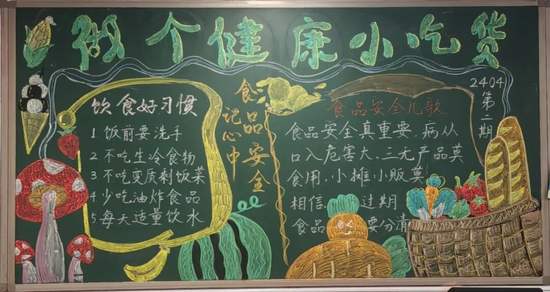 做个健康小吃货
饮食好习惯
1 饭前要洗手
2 不吃生冷食物
3 不吃变质剩饭菜
4 少吃油炸食品
5 每天适量饮水
食品安全
记心中
2404
第二期
食品安全儿歌
食品安全真重要、病从
口入危害大、三无产品莫
食用、小摊小贩莫
相信、过期
食品要分清